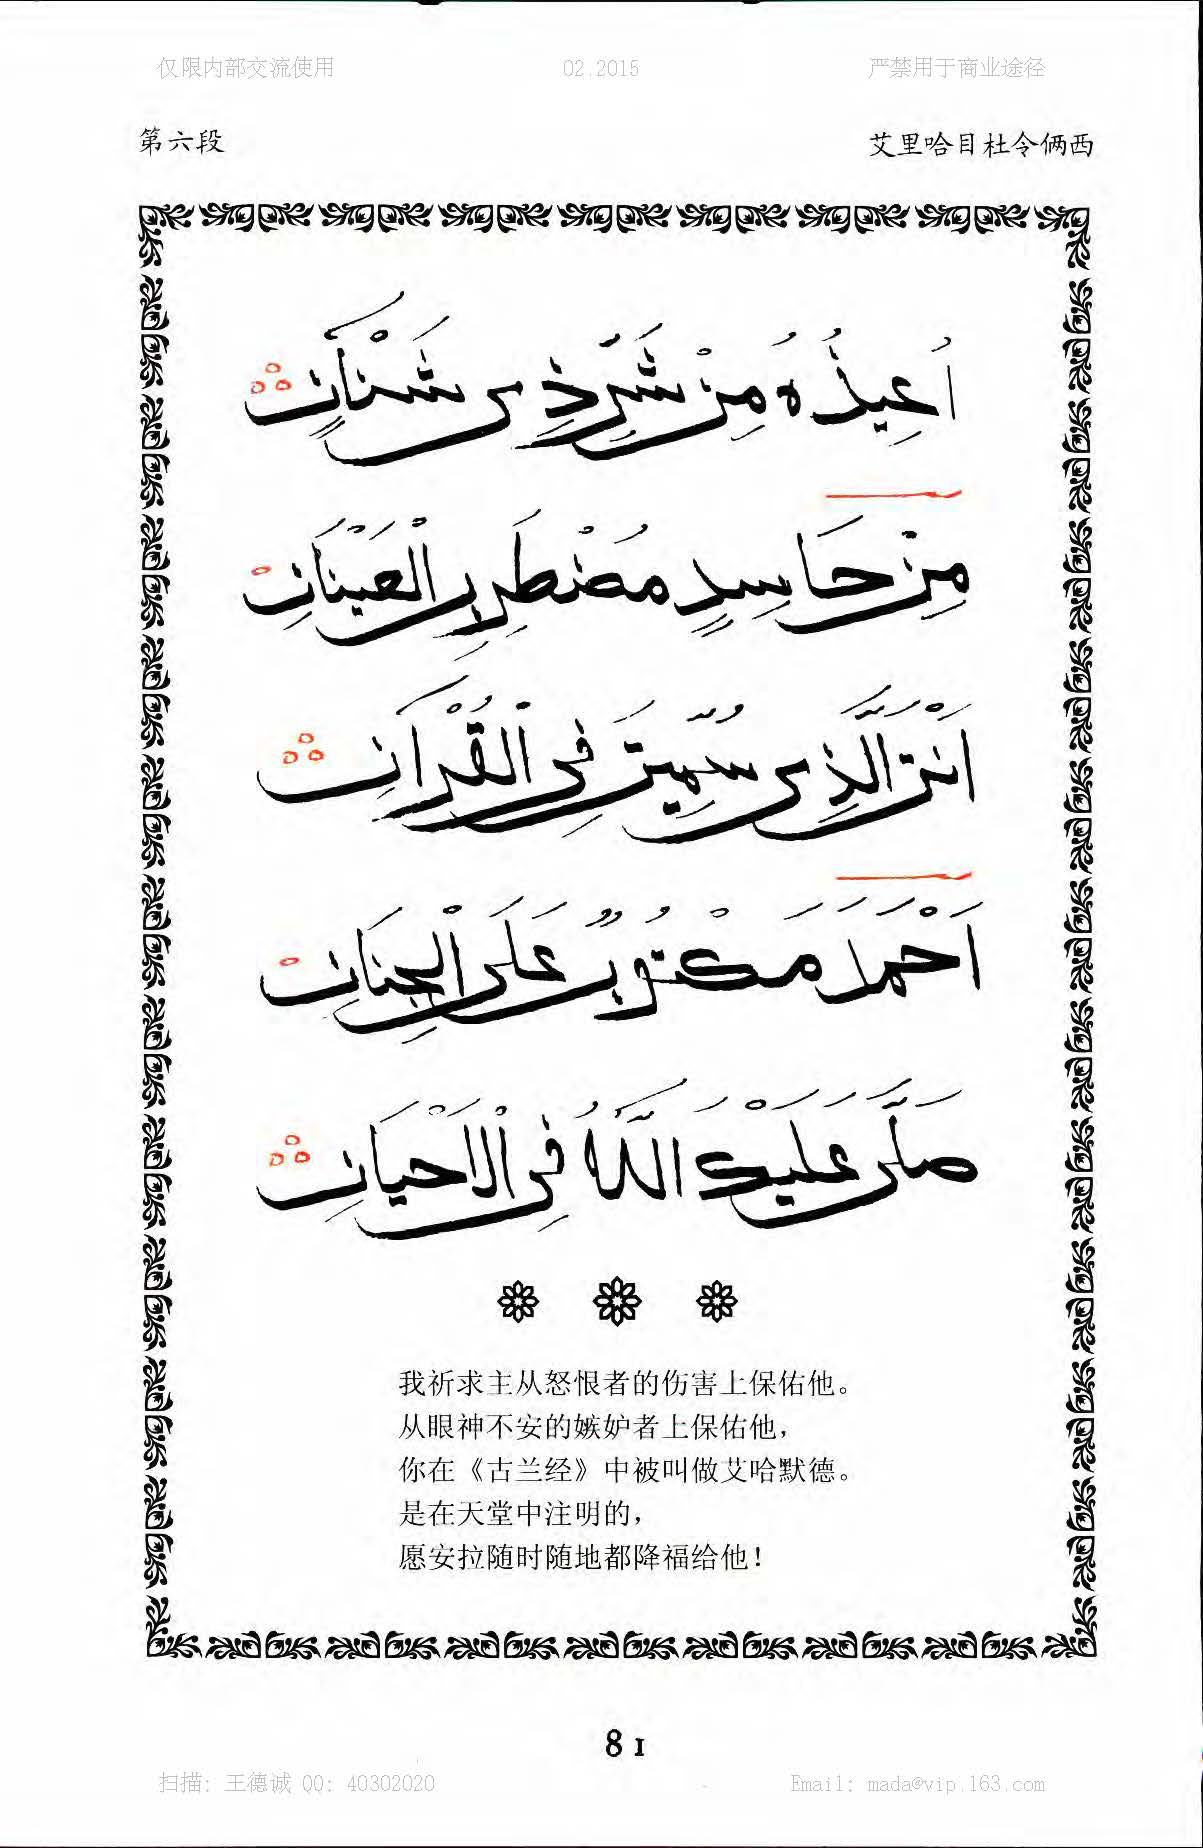 仅限内部交流使用 02.2015 严禁用于商业途径
第六段 艾里哈目杜令俩西
اُعِيذُهُ مِنْ شَرِّ ذِى شَنْاٰنٍ
مِنْ حَاسِدٍ مُضْطَرِبِ الْعَيْنَانِ
اَنْتَ الَّذِى سُمِّيتَ فِى الْقُرْاٰنِ
اَحْمَدَ مَكْتُوبٌ عَلَى الْجِنَانِ
صَلَّى عَلَيْكَ اللّٰهُ فِى الْاَحْيَانِ
我祈求主从怒恨者的伤害上保佑他。
从眼神不安的嫉妒者上保佑他，
你在《古兰经》中被叫做艾哈默德。
是在天堂中注明的，
愿安拉随时随地都降福给他！
81
扫描：王德诚 QQ：40302020 Email：mada@vip.163.com